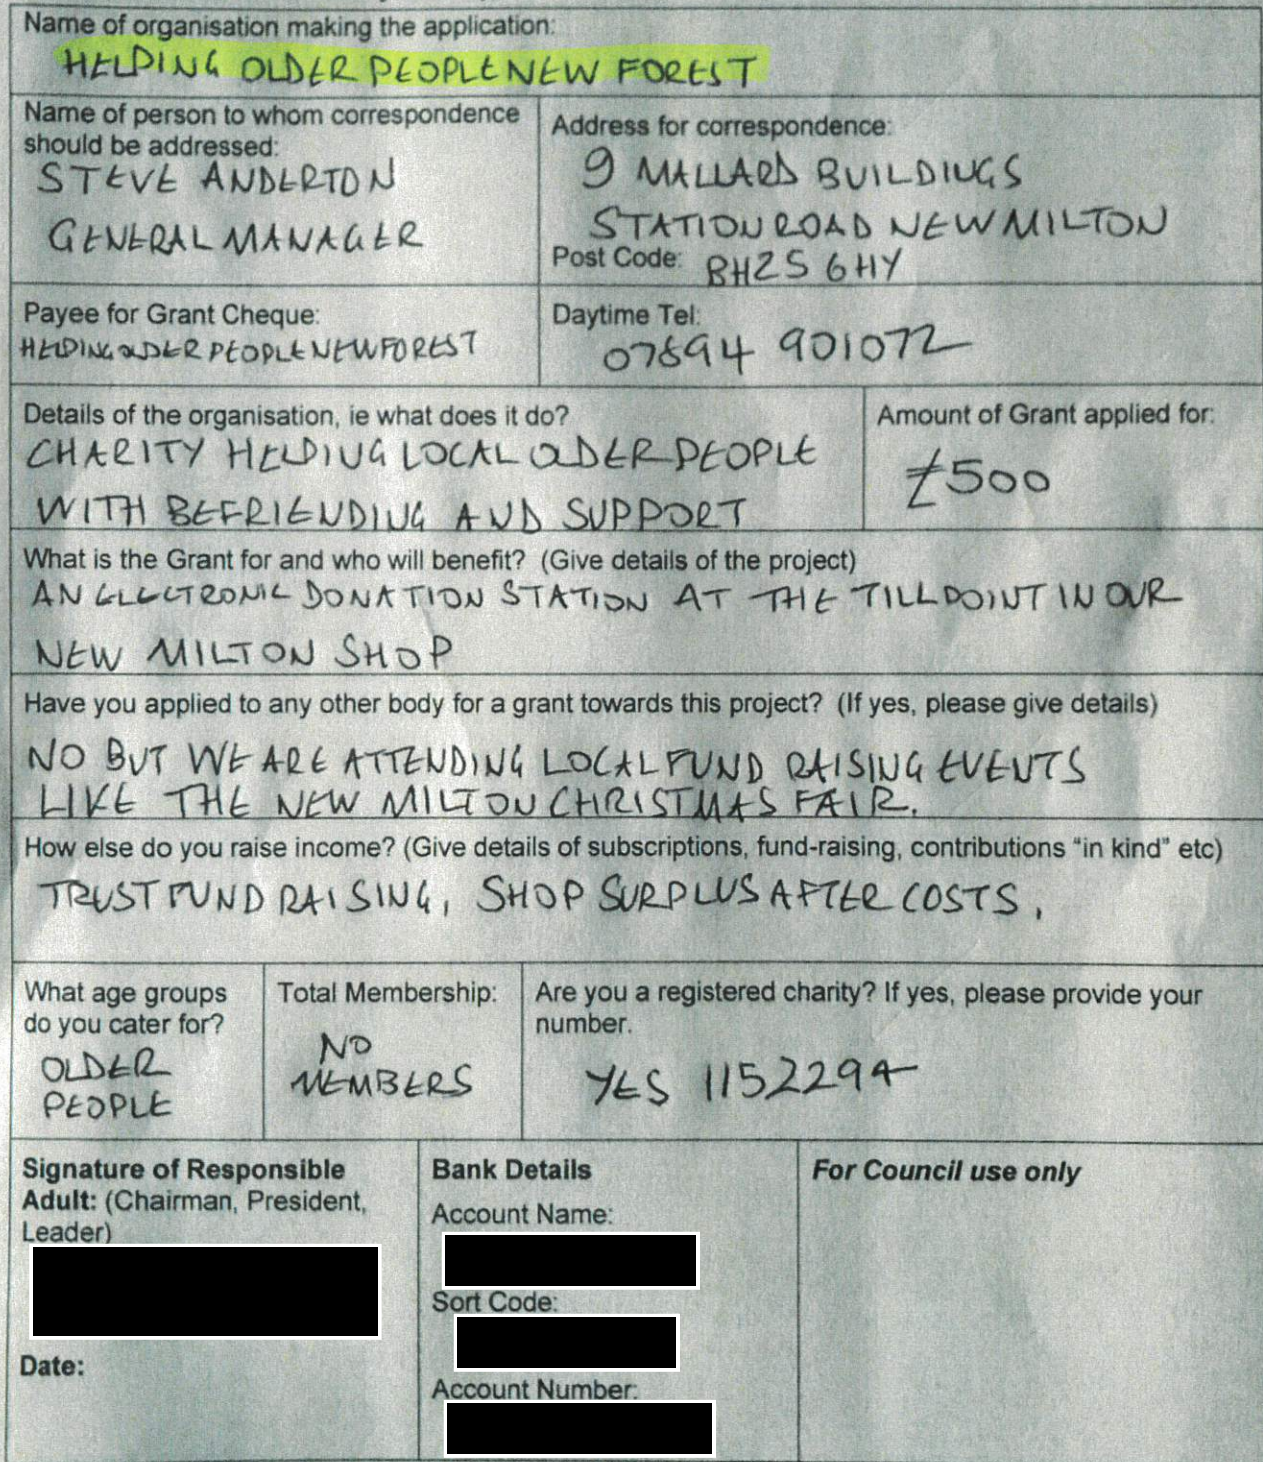 Name of organisation making the application:
HELPING OLDER PEOPLE NEW FOREST
Name of person to whom correspondence
should be addressed:
STEVE ANDERTON
GENERAL MANAGER
Address for correspondence:
9 MALLARD BUILDINGS
STATION ROAD NEW MILTON
Post Code: BH25 6HY
Payee for Grant Cheque:
HELPING OLDER PEOPLE NEW FOREST
Daytime Tel:
07894 901072
Details of the organisation, ie what does it do?
CHARITY HELPING LOCAL OLDER PEOPLE
WITH BEFRIENDING AND SUPPORT
Amount of Grant applied for:
£500
What is the Grant for and who will benefit? (Give details of the project)
AN ELECTRONIC DONATION STATION AT THE TILL POINT IN OUR
NEW MILTON SHOP
Have you applied to any other body for a grant towards this project? (If yes, please give details)
NO BUT WE ARE ATTENDING LOCAL FUND RAISING EVENTS
LIKE THE NEW MILTON CHRISTMAS FAIR.
How else do you raise income? (Give details of subscriptions, fund-raising, contributions "in kind" etc)
TRUST FUND RAISING, SHOP SURPLUS AFTER COSTS.
What age groups
do you cater for?
OLDER
PEOPLE
Total Membership:
NO
MEMBERS
Are you a registered charity? If yes, please provide your
number.
YES 1152294
Signature of Responsible
Adult: (Chairman, President,
Leader)
Date:
Bank Details
Account Name:
Sort Code:
Account Number:
For Council use only